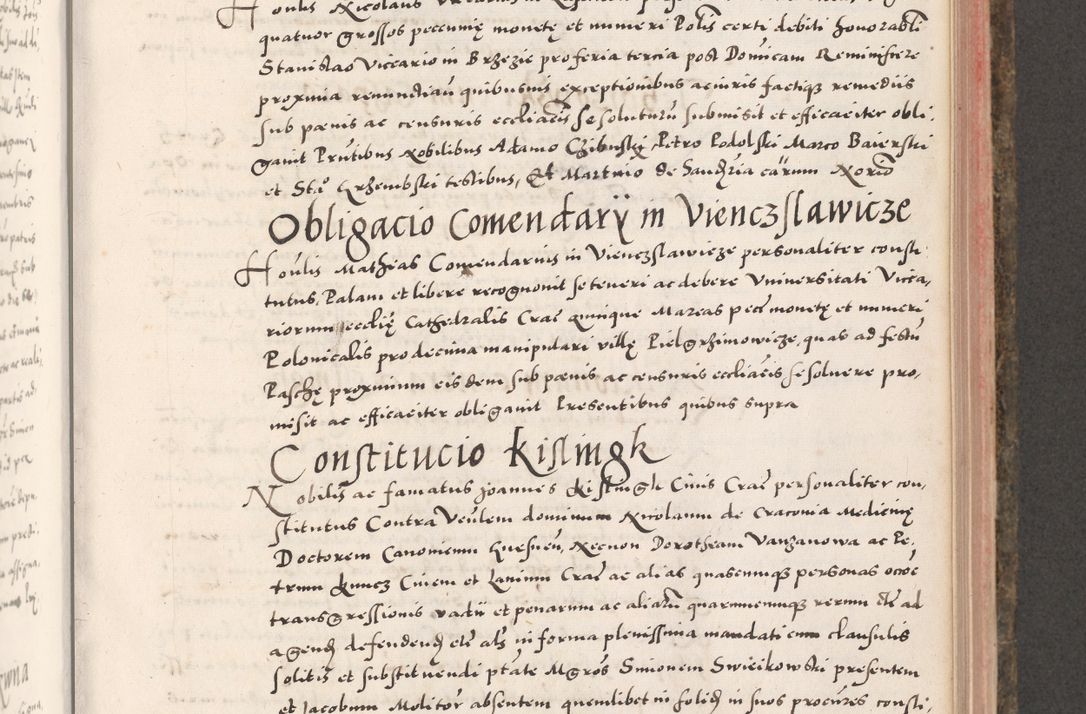 quatuor grossos peccunię monetę et numeri Polis certi debiti honorabli
Stanislao Viceario in Brzezie pro feria tercia post Domicam Reminiscere
proxima renunctiaũ quibusuis exceptionibus ac iuris factiqz remediis
sub pœnis ac censuris eccliacis se soluturũ submisit et efficaciter obli,
gauit Prñtibus Nobilibus Adamo Czibulski Petro Podolski Marco Baierski
et Sta° Krzembski testibus, Et Martino de Sandzia
Obligacio Comendarÿ in Vienczslawicze
Honlis Mathias Comendarius in Vienczslawicze personaliter consti
tutus, Palam et libere recognouit se teneri ac debere Vniuersitati Vicca,
riorum ecclię Cathedralis Crac quinque Marcas pecc monetę et numeri
Polonicalis pro decima manipulari villę Pielgrzimowicze, quas ad festũ
Paschę proximum eisdem sub pœnis ac censuris eccliacis se soluere pro,
misit ac efficaciter obligauit Presentibus quibus supra
Constitucio Kislingk
Nobilis ac famatus Joannes Kislingk Ciuis Crac personaliter con,
stitutus Contra Veñlem dominum Nicolaum de Cracouia Medicinę
Doctorem Canonicum Gnesneñ, Necnon Dorotheam Vanzanowa ac Pe,
trum Kuncz Ciuem et Lanium Crac ac alias quascumqz personas occoe
transgressionis vadii et penarum ac aliarũ quarumcumqz rerum etc ad
agend defendend etc als in forma plenissima mandati cum clausulis
solitis et substituendi ptate Mgros Simonem Swieikowski presentem
et Jacobum Molitor absentem quemlibet in solid in suos procures consti,